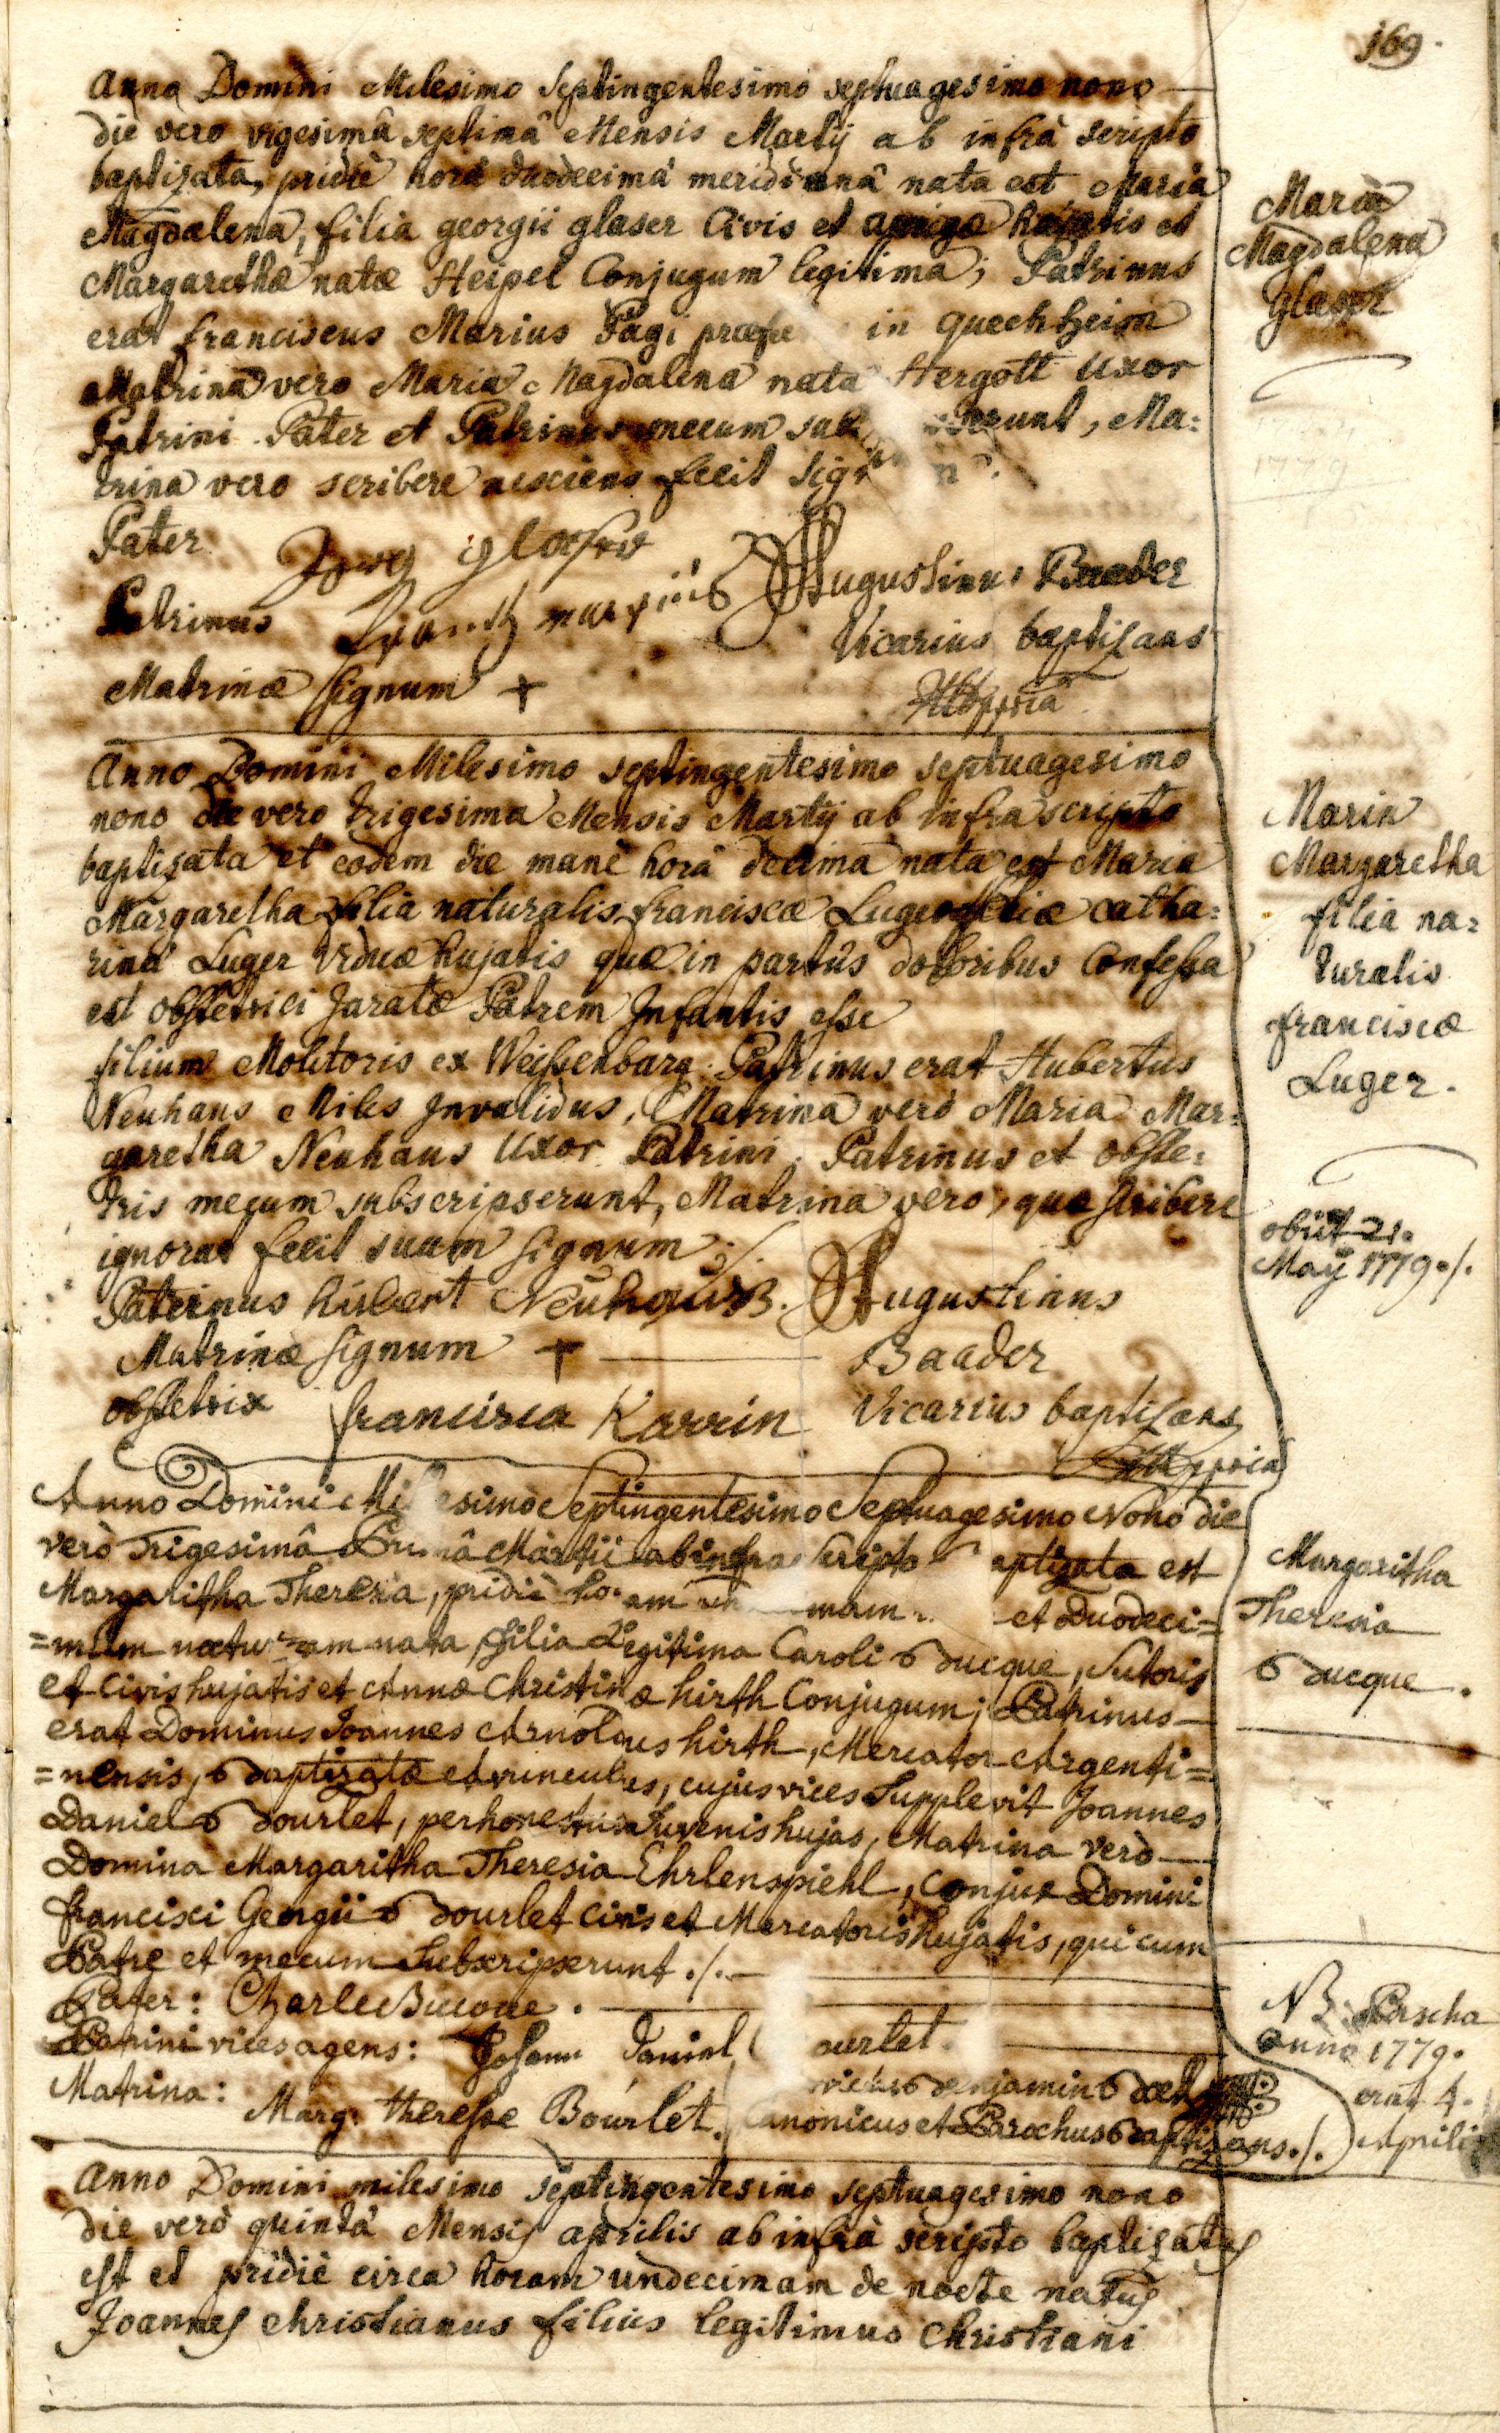 169.
Anno Domini Milesimo Septingentesimo septuagesimo nono
die vero vigesimâ septimâ Mensis Martij ab infrà scripto
baptizata, pridiè horâ duodecimâ meridianâ nata est Maria
Magdalena, filia georgii glaser Civis et hujatis et
Margarethæ natæ Heipel Conjugum legitima; Patrinus
erat franciscus Marius Pagi in queichheim
Matrina vero Maria Magdalena nata Hergott Uxor
Patrini. Pater et Patrinus mecum, Ma:
trina vero scribere nesciens fecit
Pater Jorg glasser
Patrinus frantz marius Augustinus Baader
Vicarius baptizans
Matrinæ signum +
Mppria
Maria
Magdalena
glaser
Anno Domini Milesimo septingentesimo septuagesimo
nono die vero trigesima Mensis Martij ab infra scripto
baptizata et eodem die manè horâ decima nata est Maria
Margaretha filia naturalis franciscæ Luger filiæ catha:
rina Luger viduæ hujatis quæ in partûs doloribus Confessa
est obstetrici juratæ Patrem Infantis esse
filium Molitoris ex Weissenburg. Patrinus erat Hubertus
Neuhaus Miles Invalidus, Matrina verò Maria Mar:
garetha Neuhaus Uxor Patrini. Patrinus et obste:
tris mecum subscripserunt, Matrina vero, quæ scribere
ignorat fecit suum signum ./.
Paterinus hubert Neuhaus. Augustinus
Matrinæ signum + Baader
obstetrix francisca Karrin Vicarius baptizans
Mppria
Maria
Margaretha
filia na:
turalis
franciscæ
Luger.
obiit 21.
Maÿ 1779 ./.
Anno Domini Mil esimo Septingentesimo Septuagesimo Nono die
verò Trigesimâ Primâ Martii ab infra Scripto aptizata est
Margaritha Theresia, pridiè et Duodeci=
=mam nocturnam nata, filia Legitima Caroli Bucque, Sutoris
et Civis hujatis et Annæ Christinæ hirth Conjugum; Patrinus
erat Dominus Joannes Arnoldus hirth, Mercator Argenti=
=nensis, Baptizatæ Avunculus, cujus vices Supplevit Joannes
Daniel Bourlet, perhonestus Juvenis hujas, Matrina verò
Domina Margaritha Theresia Ehrlenspiehl, Conjux Domini
francisci Georgii Bourlet civis et Mercatoris hujatis, qui cum
Patre et mecum Subscripserunt ./.
Pater: Charle Bucque.
Patrini vices agens: Johann Daniel ourlet.
Matrina: Marg: theresse Bourlet.
Benjamin
anonicus et Parochus Baptizans ./.
Margaritha
Theresia
Bucque.
NB: Pascha
anno 1779.
erat 4.
Aprilis
Anno Domini milesimo septingentesimo septuagesimo nono
die verò quintâ Mensis aprilis ab infrà scripto baptizatus
est et pridiè circa horam undecimam de nocte natus
Joannes Christianus filius legitimus Christiani